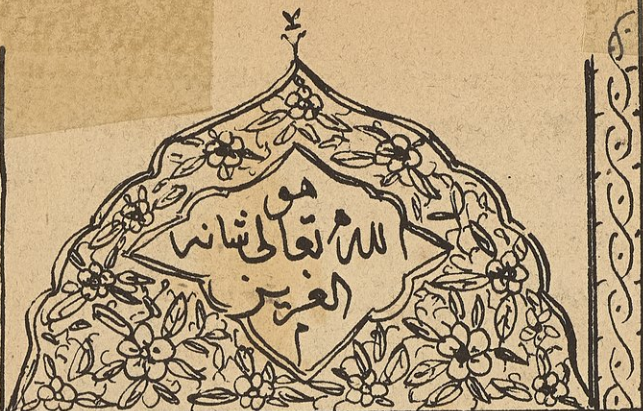 هو
الله تعالی شانه
العزیز